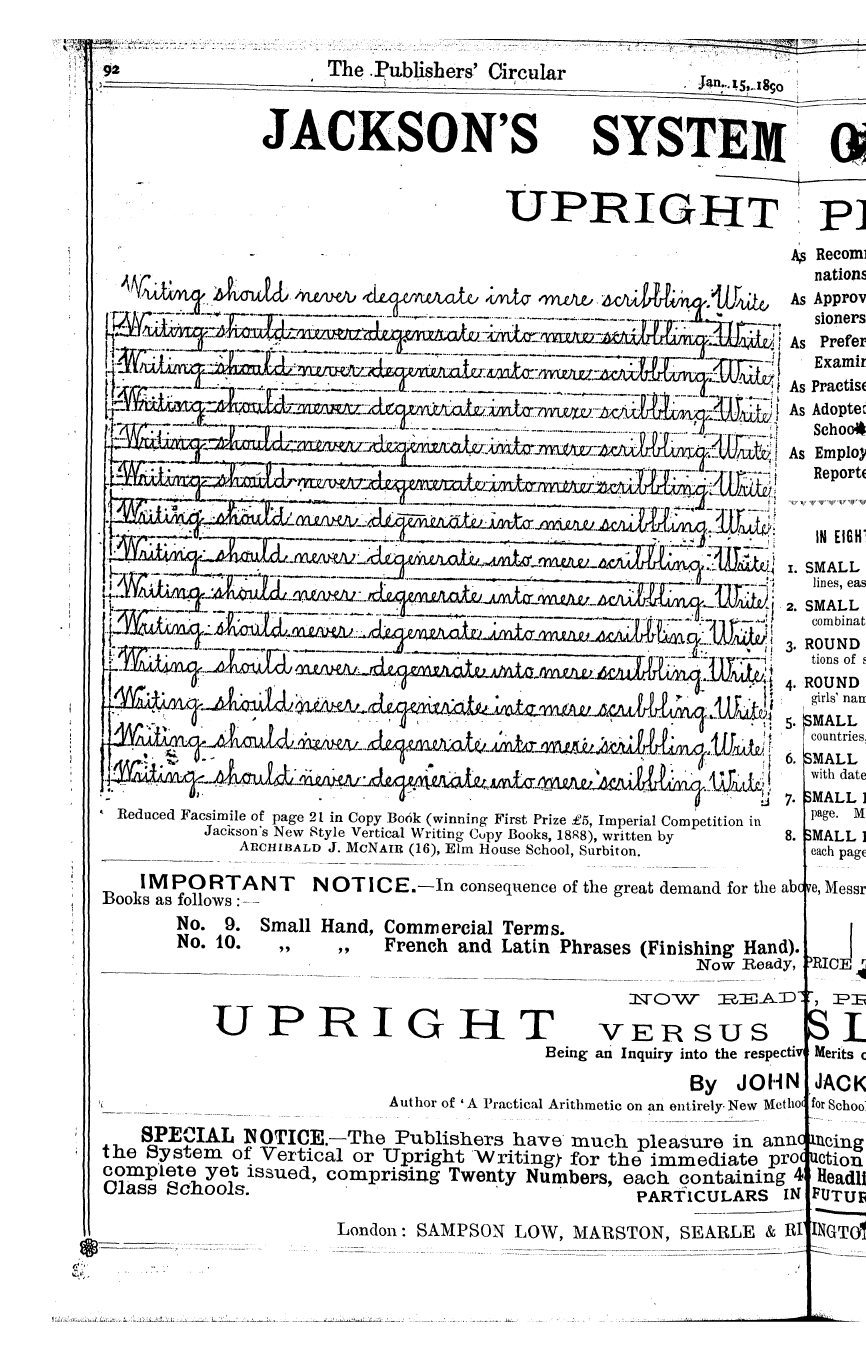 92
The Publishers' Circular
Jan. 15, 1890
JACKSON'S SYSTEM
UPRIGHT
As Recom
nations
As Approv
sioners
As Prefer
Examin
As Practise
As Adopte
Schoo
As Employ
Reporte
Writing should never degenerate into mere scribbling. Write
Writing should never degenerate into mere scribbling. Write
Writing should never degenerate into mere scribbling. Write
Writing should never degenerate into mere scribbling. Write
Writing should never degenerate into mere scribbling. Write
Writing should never degenerate into mere scribbling. Write
Writing should never degenerate into mere scribbling. Write
Writing should never degenerate into mere scribbling. Write
Writing should never degenerate into mere scribbling. Write
Writing should never degenerate into mere scribbling. Write
Writing should never degenerate into mere scribbling. Write
Writing should never degenerate into mere scribbling. Write
Writing should never degenerate into mere scribbling. Write
Writing should never degenerate into mere scribbling. Write
IN EIGH
1. SMALL
lines, eas
2. SMALL
combinat
3. ROUND
tions of s
4. ROUND
girls' nam
5. SMALL
countries,
6. SMALL
with date
7. SMALL
page. M
8. SMALL
each page
Reduced Facsimile of page 21 in Copy Book (winning First Prize £5, Imperial Competition in
Jackson's New Style Vertical Writing Copy Books, 1888), written by
ARCHIBALD J. MCNAIR (16), Elm House School, Surbiton.
IMPORTANT NOTICE.—In consequence of the great demand for the above, Messr
Books as follows :—
No. 9. Small Hand, Commercial Terms.
No. 10. „ „ French and Latin Phrases (Finishing Hand).
Now Ready, PRICE
NOW READY, PR
UPRIGHT VERSUS SL
Being an Inquiry into the respective Merits o
By JOHN JACK
Author of 'A Practical Arithmetic on an entirely New Method for Schoo
SPECIAL NOTICE.—The Publishers have much pleasure in announcing
the System of Vertical or Upright Writing) for the immediate production
complete yet issued, comprising Twenty Numbers, each containing Headli
Class Schools.
PARTICULARS IN FUTUR
London: SAMPSON LOW, MARSTON, SEARLE & RIVINGTO